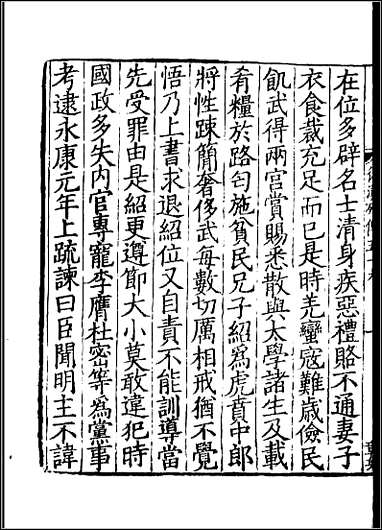 在位多辟名士清身疾惡禮賂不通妻子
衣食裁充足而已是時羌蠻寇難歳儉民
飢武得兩宮賞賜悉散與太學諸生及載
肴糧於路匄施貧民兄子紹爲虎賁中郎
將性踈簡奢侈武每數切厲相戒猶不覺
悟乃上書求退紹位又自責不能訓導當
先受罪由是紹更遵節大小莫敢違犯時
國政多失内官專寵李膺杜密等爲黨事
考逮永康元年上疏諫曰臣聞明主不諱